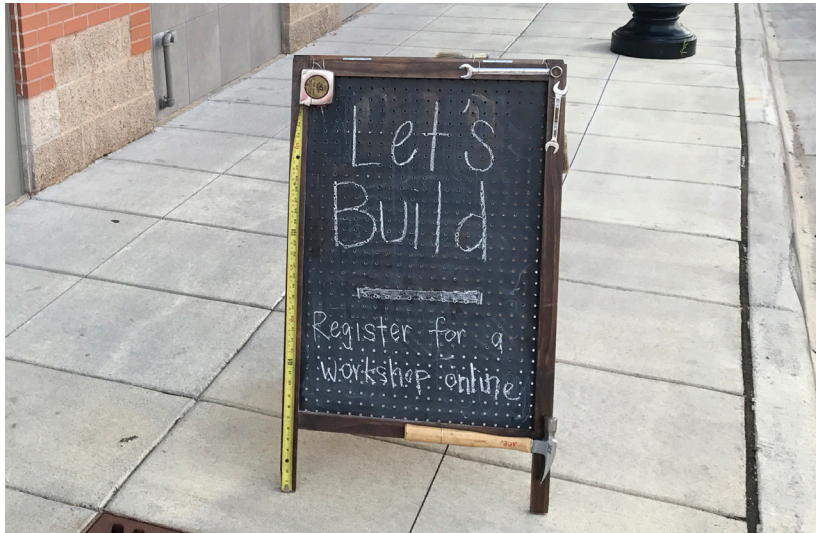 Let's
Build
Register for a
workshop online